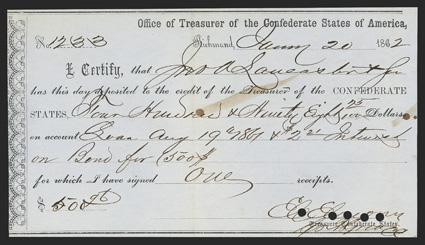 Office of Treasurer of the Confederate States of America,
No. 1233 Richmond, Jany 20 1862
I Certify, that Jno A Lancaster & Son
has this day deposited to the credit of the Treasurer of the CONFEDERATE
STATES, Four Hundred & Ninety Eight 25/100 Dollars
on account Loan Aug 19th 1861 & Interest
on Bond for 500$
for which I have signed One receipts.
$
Treasurer Confederate States.